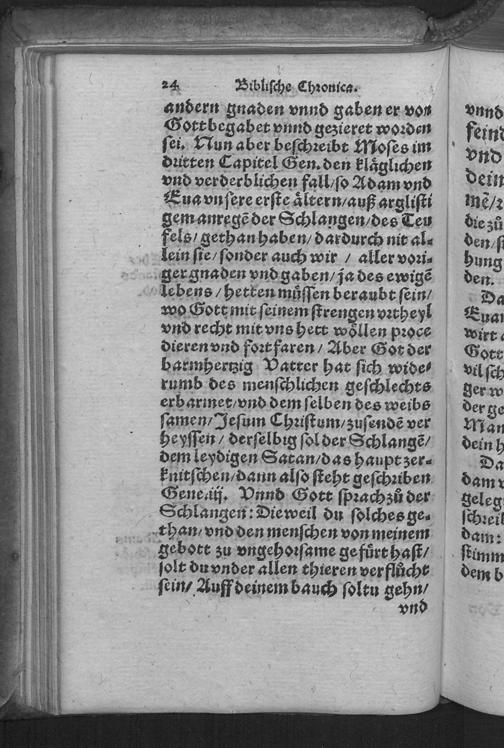 24 Biblische Chronica.
andern gnaden vnnd gaben er von
Gott begabet vnnd gezieret worden
sei. Nun aber beschreibt Moses im
dritten Capitel Gen. den kläglichen
vnd verderblichen fall/so Adam vnd
Eua vnsere erste ältern/auß arglisti
gem anregẽ der Schlangen/des Teu
fels/gethan haben/dardurch nit al-
lein sie/sonder auch wir/aller vori-
ger gnaden vnd gaben/ja des ewigẽ
lebens/hetten müssen beraubt sein/
wo Gott mit seinem strengen vrtheyl
vnd recht mit vns hett wöllen proce
dieren vnd fortfaren/Aber Got der
barmhertzig Vatter hat sich wide-
rumb des menschlichen geschlechts
erbarmet/vnd dem selben des weibs
samen/Jesum Christum/zusendẽ ver
heyssen/derselbig sol der Schlangẽ/
dem leydigen Satan/das haupt zer-
knitschen/dann also steht geschriben
Gene.iij. Vnnd Gott sprach zů der
Schlangen: Dieweil du solches ge-
than/vnd den menschen von meinem
gebott zu vngehorsame gefürt hast/
solt du vnder allen thieren verflůcht
sein/Auff deinem bauch soltu gehn/
vnd
vnnd
feind
vnd
dein
mẽ/
die zů
den/
hung
den.
Da
Euan
wirt
Gott
vil sch
ger w
der ge
Man
dein h
Da
dam v
geleg
schreib
dam:
stimm
dem b